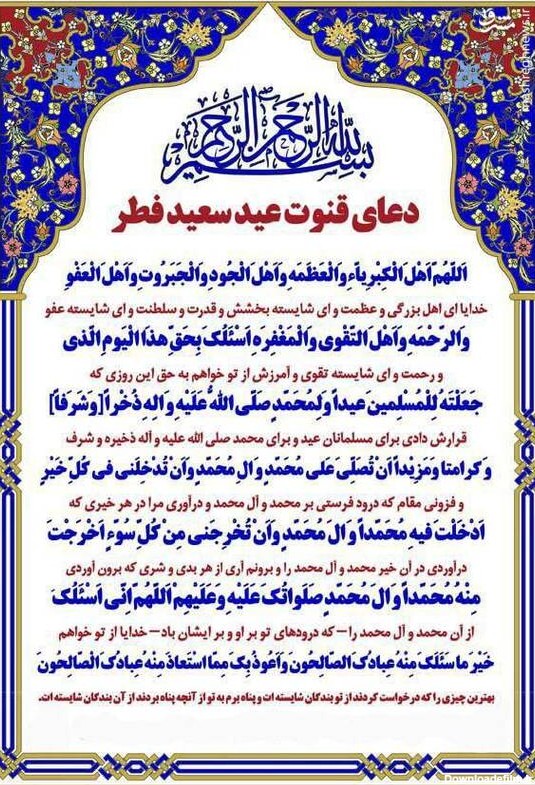 بسم الله الرحمن الرحیم
دعای قنوت عید سعید فطر
اَللّهُمَّ اَهْلَ الْکِبْرِیاَّءِ وَالْعَظَمَهِ وَاَهْلَ الْجُودِ وَالْجَبَرُوتِ وَاَهْلَ الْعَفْوِ
خدایا ای اهل بزرگی و عظمت و ای شایسته بخشش و قدرت و سلطنت و ای شایسته عفو
وَالرَّحْمَهِ وَاَهْلَ التَّقْوی وَالْمَغْفِرَهِ اَسْئَلُکَ بِحَقِّ هذَا الْیَومِ الَّذی
و رحمت و ای شایسته تقوی و آمرزش از تو خواهم به حق این روزی که
جَعَلْتَهُ لِلْمُسْلِمینَ عیداً وَلِمُحَمَّدٍ صَلَّی اللهُ عَلَیْهِ وَالِهِ ذُخْراً [وَشَرَفاً]
قرارش دادی برای مسلمانان عید و برای محمد صلی الله علیه و آله ذخیره و شرف
وَ کَرامتا وَمَزیْداً اَنْ تُصَلِّیَ عَلی مُحَمَّدٍ وَ الِ مُحَمَّدٍ وَاَنْ تُدْخِلَنی فی کُلِّ خَیْرٍ
و فزونی مقام که درود فرستی بر محمد و آل محمد و درآوری مرا در هر خیری که
اَدْخَلْتَ فیهِ مُحَمَّداً وَ الَ مُحَمَّدٍ وَاَنْ تُخْرِجَنی مِنْ کُلِّ سُوَّءٍ اَخْرَجْتَ
درآوردی در آن خیر محمد و آل محمد را و برونم آری از هر بدی و شری که برون آوردی
مِنْهُ مُحَمَّداً وَ الَ مُحَمَّدٍ صَلَواتُکَ عَلَیْهِ وَ عَلَیْهِمْ اَللّهُمَّ اِنّی اَسْئَلُکَ
از آن محمد و آل محمد را – که درودهای تو بر او و بر ایشان باد – خدایا از تو خواهم
خَیْرَ ما سَئَلَکَ مِنْهُ عِبادُکَ الصّالِحُونَ وَ اَعُوذُ بِکَ مِمَّا اسْتَعاذَ مِنْهُ عِبادُکَ الْصّالِحُونَ
بهترین چیزی را که درخواست کردند از تو بندگان شایسته ات و پناه برم به تو از آنچه پناه بردند از آن بندگان شایسته ات.
مشرق
mashreghnews.ir